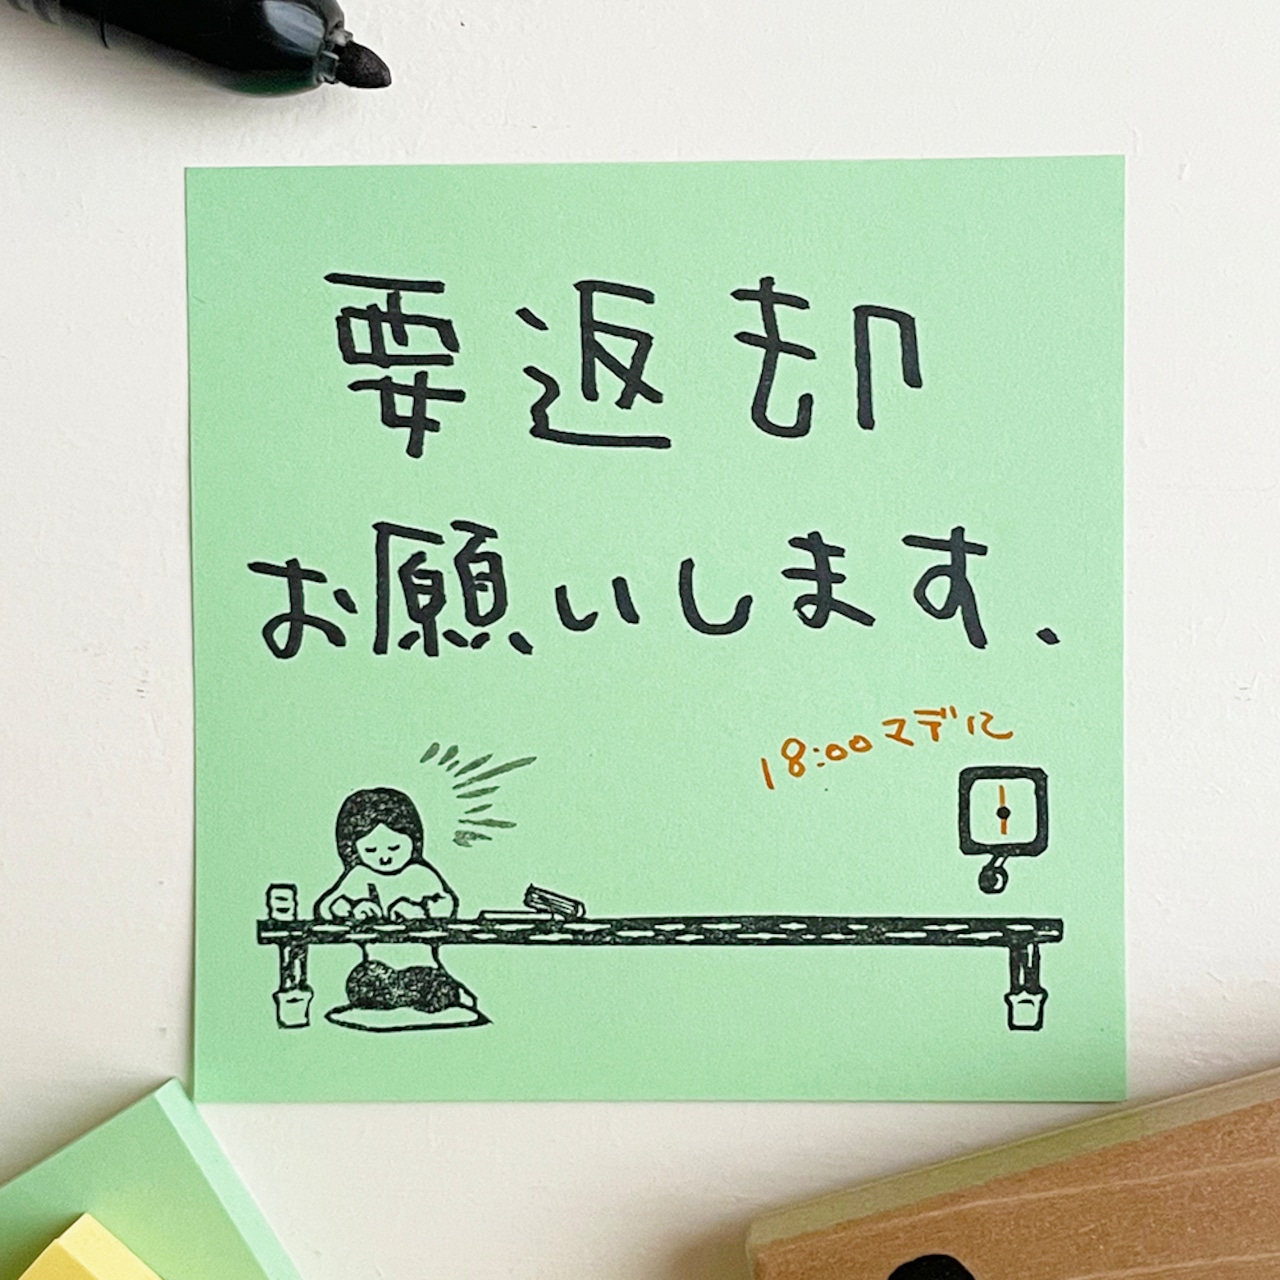 要返却
お願いします、
18:00マデに